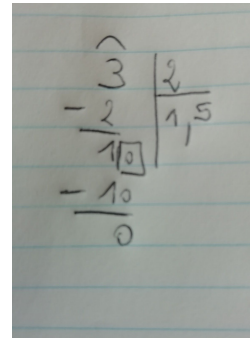 3 2
- 2 1,5
10
- 10
0